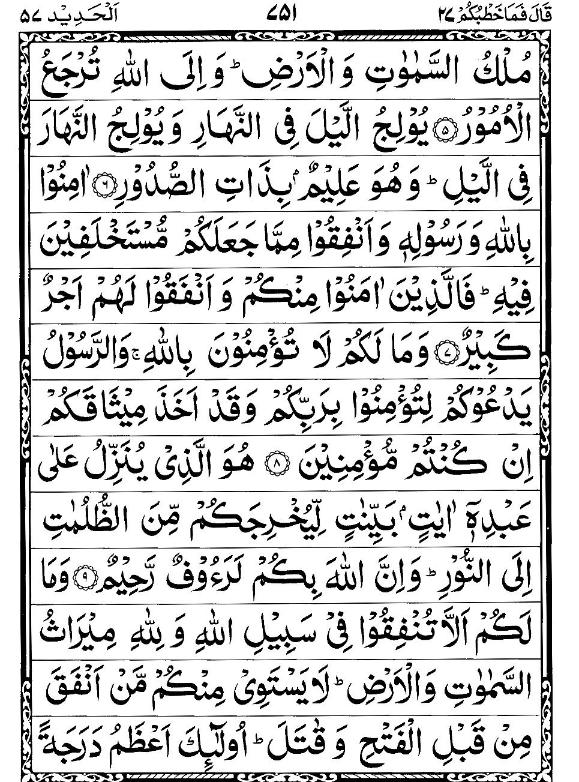 قَالَ فَمَا خَطْبُكُمْ ٢٧ ٧٥١ اَلْحَدِيْد ٥٧
مُلْكُ السَّمٰوٰتِ وَ الْاَرْضِ ؕ وَ اِلَى اللّٰهِ تُرْجَعُ
الْاُمُوْرُ ۝٥ يُوْلِجُ الَّيْلَ فِى النَّهَارِ وَ يُوْلِجُ النَّهَارَ
فِى الَّيْلِ ؕ وَ هُوَ عَلِيْمٌۢ بِذَاتِ الصُّدُوْرِ ۝٦ اٰمِنُوْا
بِاللّٰهِ وَ رَسُوْلِهٖ وَ اَنْفِقُوْا مِمَّا جَعَلَكُمْ مُّسْتَخْلَفِيْنَ
فِيْهِ ؕ فَالَّذِيْنَ اٰمَنُوْا مِنْكُمْ وَ اَنْفَقُوْا لَهُمْ اَجْرٌ
كَبِيْرٌ ۝٧ وَ مَا لَكُمْ لَا تُؤْمِنُوْنَ بِاللّٰهِ ۚ وَالرَّسُوْلُ
يَدْعُوْكُمْ لِتُؤْمِنُوْا بِرَبِّكُمْ وَ قَدْ اَخَذَ مِيْثَاقَكُمْ
اِنْ كُنْتُمْ مُّؤْمِنِيْنَ ۝٨ هُوَ الَّذِىْ يُنَزِّلُ عَلٰى
عَبْدِهٖۤ اٰيٰتٍۭ بَيِّنٰتٍ لِّيُخْرِجَكُمْ مِّنَ الظُّلُمٰتِ
اِلَى النُّوْرِ ؕ وَ اِنَّ اللّٰهَ بِكُمْ لَرَءُوْفٌ رَّحِيْمٌ ۝٩ وَ مَا
لَكُمْ اَلَّا تُنْفِقُوْا فِىْ سَبِيْلِ اللّٰهِ وَ لِلّٰهِ مِيْرَاثُ
السَّمٰوٰتِ وَالْاَرْضِ ؕ لَا يَسْتَوِىْ مِنْكُمْ مَّنْ اَنْفَقَ
مِنْ قَبْلِ الْفَتْحِ وَ قٰتَلَ ؕ اُولٰٓئِكَ اَعْظَمُ دَرَجَةً